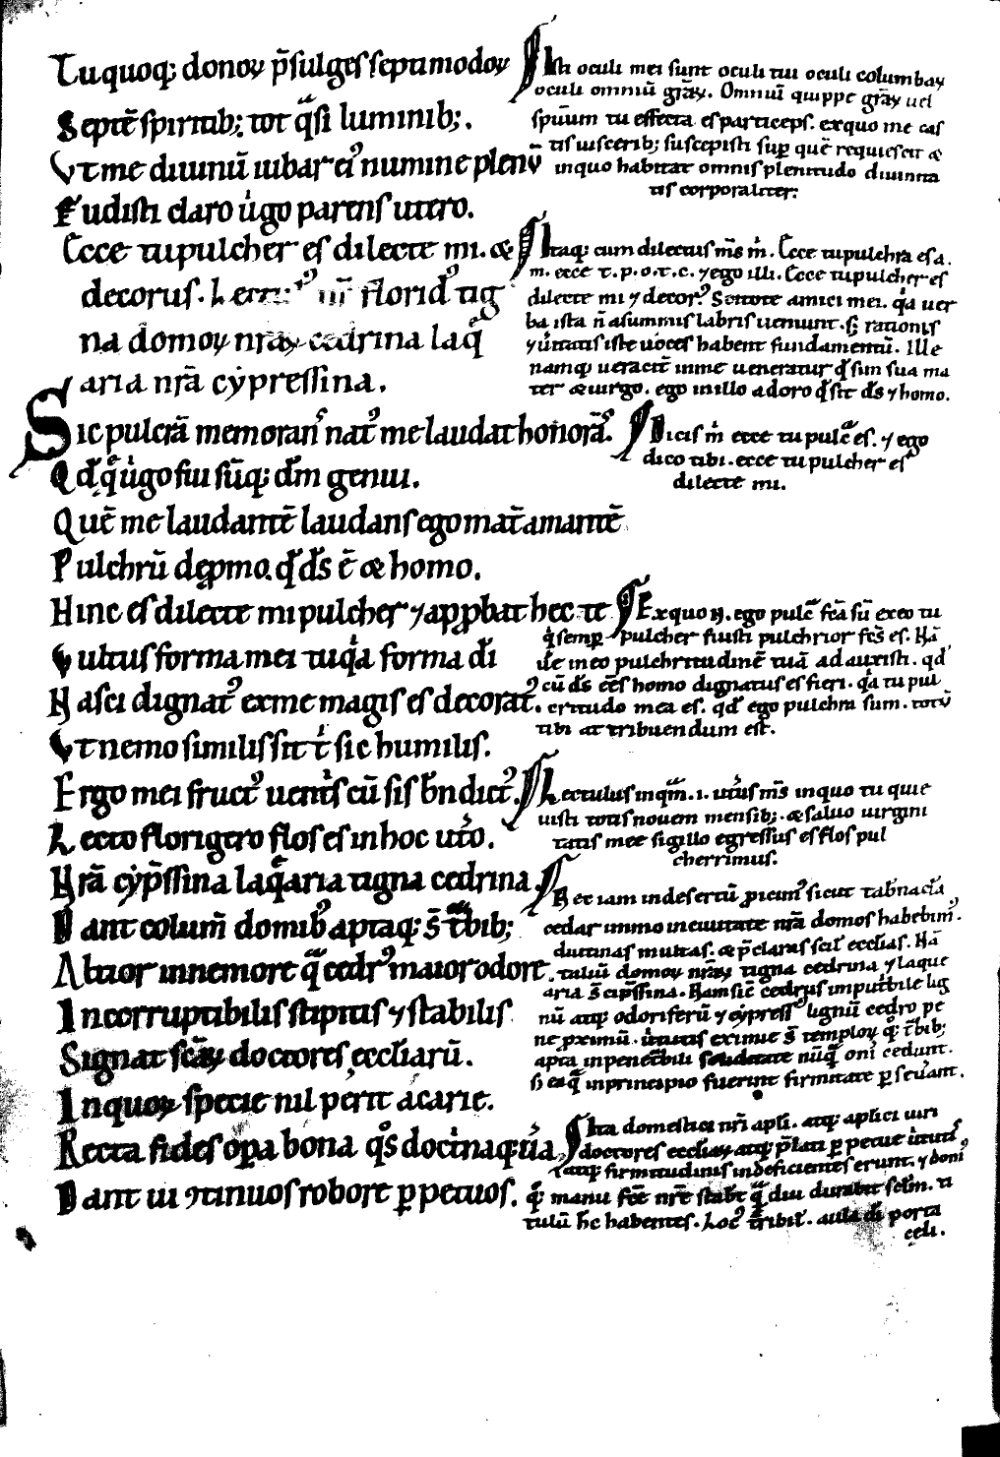 Tuquoq; donoꝝ p̄sulges septimodoꝝ
Septē spiritib; tot qͣsi luminib;.
Vt me diuinū iubar eiꝰ numine plenū
Fudisti claro uͥgo parens utero.
Ecce tu pulcher es dilecte mi. &
decorus. floridꝰ tig
na domoꝝ nr̄aꝝ cedrina laqͤ
aria nr̄a cẏpressina.
Sic pulcrā memorans natꝰ me laudat honorās.
Qd̓ qͤ uͥgo fui sūq; dm̄ genui.
Quē me laudantē laudans ego mat̄ amantē
Pulchrū dep̱mo. qd̓ ds̓ ē & homo.
Hinc es dilecte mi pulcher ⁊ app̱bat hec te
Vultus forma mei tu qͥa forma di̓
Nasci dignatꝰ ex me magis es decoratꝰ.
Vt nemo similis sit tͥ sic humilis.
Ergo mei fructꝰ uentͥs cū sis bn̓dictꝰ.
Lecto florigero flos es in hoc utͦo.
Nr̄a cẏp̄ssina laqͤaria tigna cedrina
Dant colum̄ domibꝰ aptaq; s̄ tͣbib;
Altior in nemore qͣ cedrꝰ maior odore.
Incorruptibilis stipitis ⁊ stabilis
Signat scāꝝ doctores eccl̓iarū.
Inquoꝝ specie nil perit a carie.
Recta fides op̱a bona qͦs doctͥnaq; uͣa
Dant ui ꝯtinuos robore p̱petuos.
Isti oculi mei sunt oculi tui oculi columbaꝝ
oculi omniū gr̄aꝝ. Omniū quippe gr̄aꝝ uel
spūum tu effecta es particeps. ex quo me cas
tis uiscerib; suscepisti sup̱ quē requiescit &
in quo habitat omnis plenitudo diuinita
tis corporaliter:
Itaq; cum dilectus ms̄ mͥ. Ecce tu pulchra es a.
m. ecce t. p. o. t. c. ⁊ ego illi. Ecce tu pulcher es
dilecte mi ⁊ decorꝰ. amici mei. qͥa uer
ba ista n̄ a summis labris ueniunt. s; rationis
⁊ uͥtatis iste uoces habent fundamentū. Ille
namq; ueracit̄ in me ueneratur qd̓ sim sua ma
ter & uirgo. ego in illo adoro qd̓ sit ds̓ ⁊ homo.
Dicis mͥ ecce tu pulcͣ es. ⁊ ego
dico tibi. ecce tu pulcher es
dilecte mi.
Ex quo n̄. ego pulcͣ fcā sū ex eo tu
qͥ semp̱ pulcher fuisti pulchrior fcs̄ es. Nā
de meo pulchritudinē tuā adauxisti. qd̓
cū ds̓ eēs homo dignatus es fieri. qͥa tu pul
critudo mea es. qd̓ ego pulchra sum. totū
tibi attribuendum est.
Lectulus inqͣm. i. utͦus ms̄ in quo tu quie
uisti totis nouem mensib;. & saluo uirgini
tatis mee sigillo egressus es flos pul
cherrimus.
Nec iam in desertū ꝓicimꝰ sicut tab̓nacl̓a
cedar immo in ciuitate nr̄a domos habebimꝰ.
diuinas multas. & p̄claras scil̓ eccl̓ias. Nā
taliū domoꝝ nr̄aꝝ tigna cedrina ⁊ laque
aria s̄ cip̄ssina. Nam sic̄ cedrus imput̓bile lig
nū atq; odoriferū ⁊ cẏpressꝰ lignū cedro pe
ne ꝓximū. uͥtutis eximie s̄ temploꝝ qͤ tͣbib;
apta inpenet̓bili soliditate nūqͣ oni̓ cedunt.
s; eaqͣ in principio fuerint firmitate p̱seuͣant.
Ita domestici nr̄i apl̓i. atq; aplici uiri
doctores eccl̓iaꝝ atq; p̄lati p̱petue uͥtutis
atq; firmitudinis indeficientes erunt. ⁊ domꝰ
qͤ manu fcē nr̄e stabt̓ qͣ diu durabit sc̓lm. ti
tulū hc̄ habentes. Locꝰ t̓ribil̓. aula di̓ porta
celi.